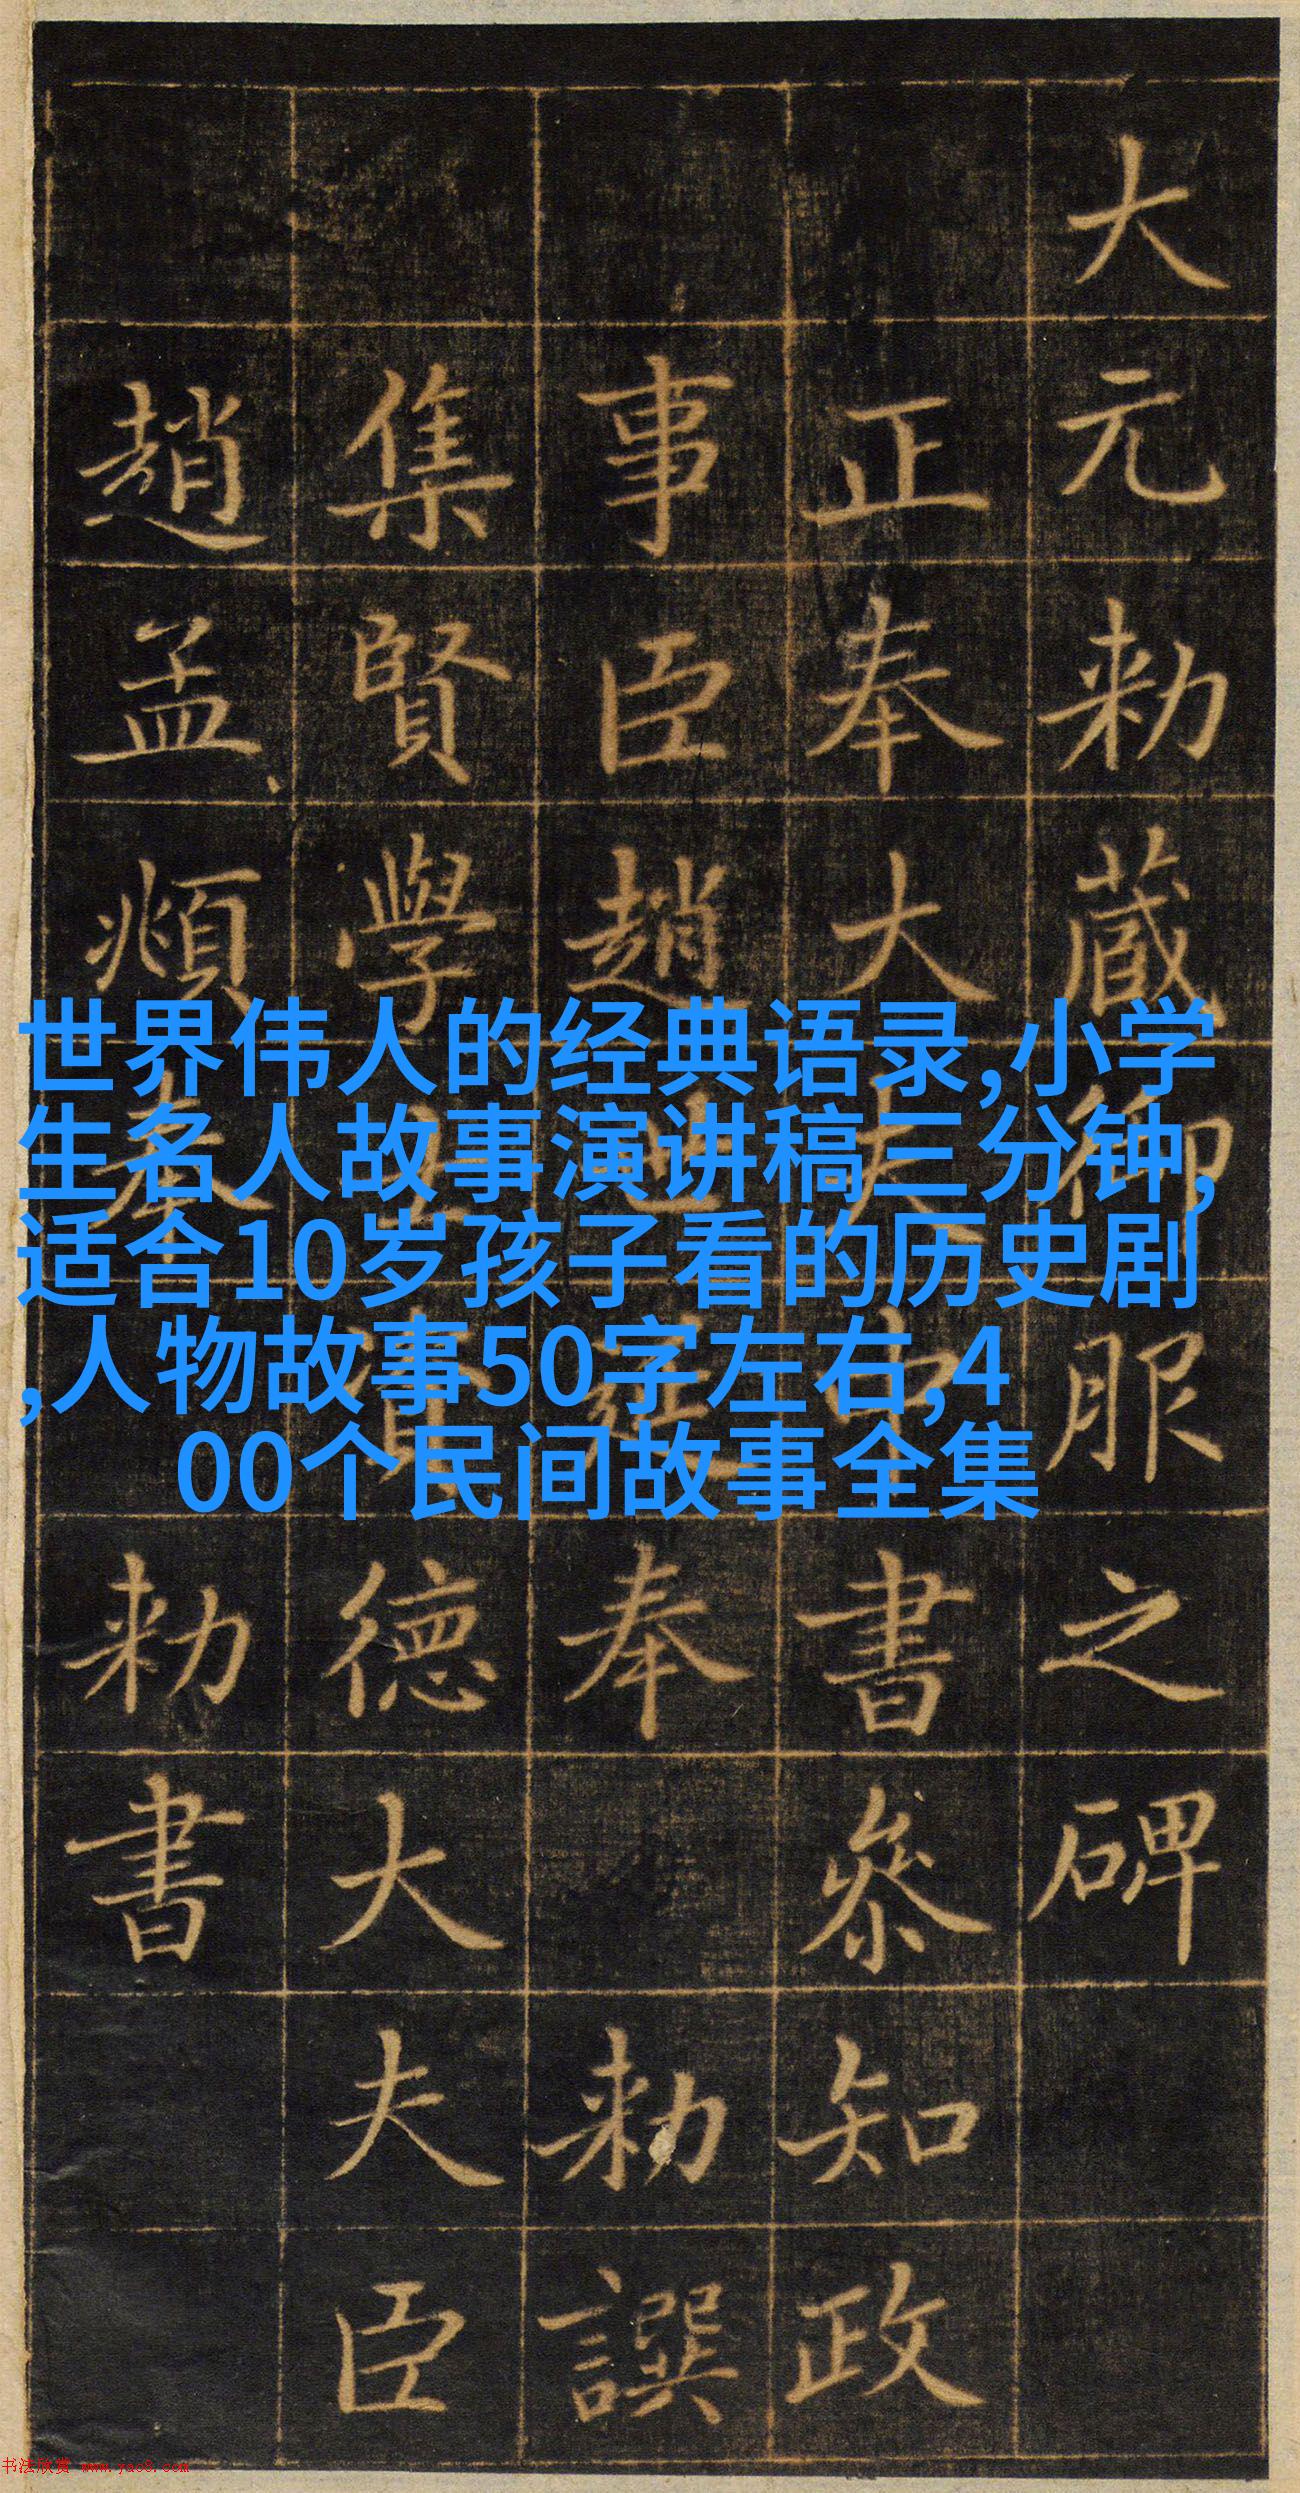 大元勑藏御服之碑
正奉大夫中書叅知政
事臣趙世延奉 勑譔
集賢學士資德大夫臣
趙孟頫奉 勑書
世界伟人的经典语录,小学
生名人故事演讲稿三分钟,
适合10岁孩子看的历史剧
,人物故事50字左右,4
00个民间故事全集
书法欣赏 www.yac8.com